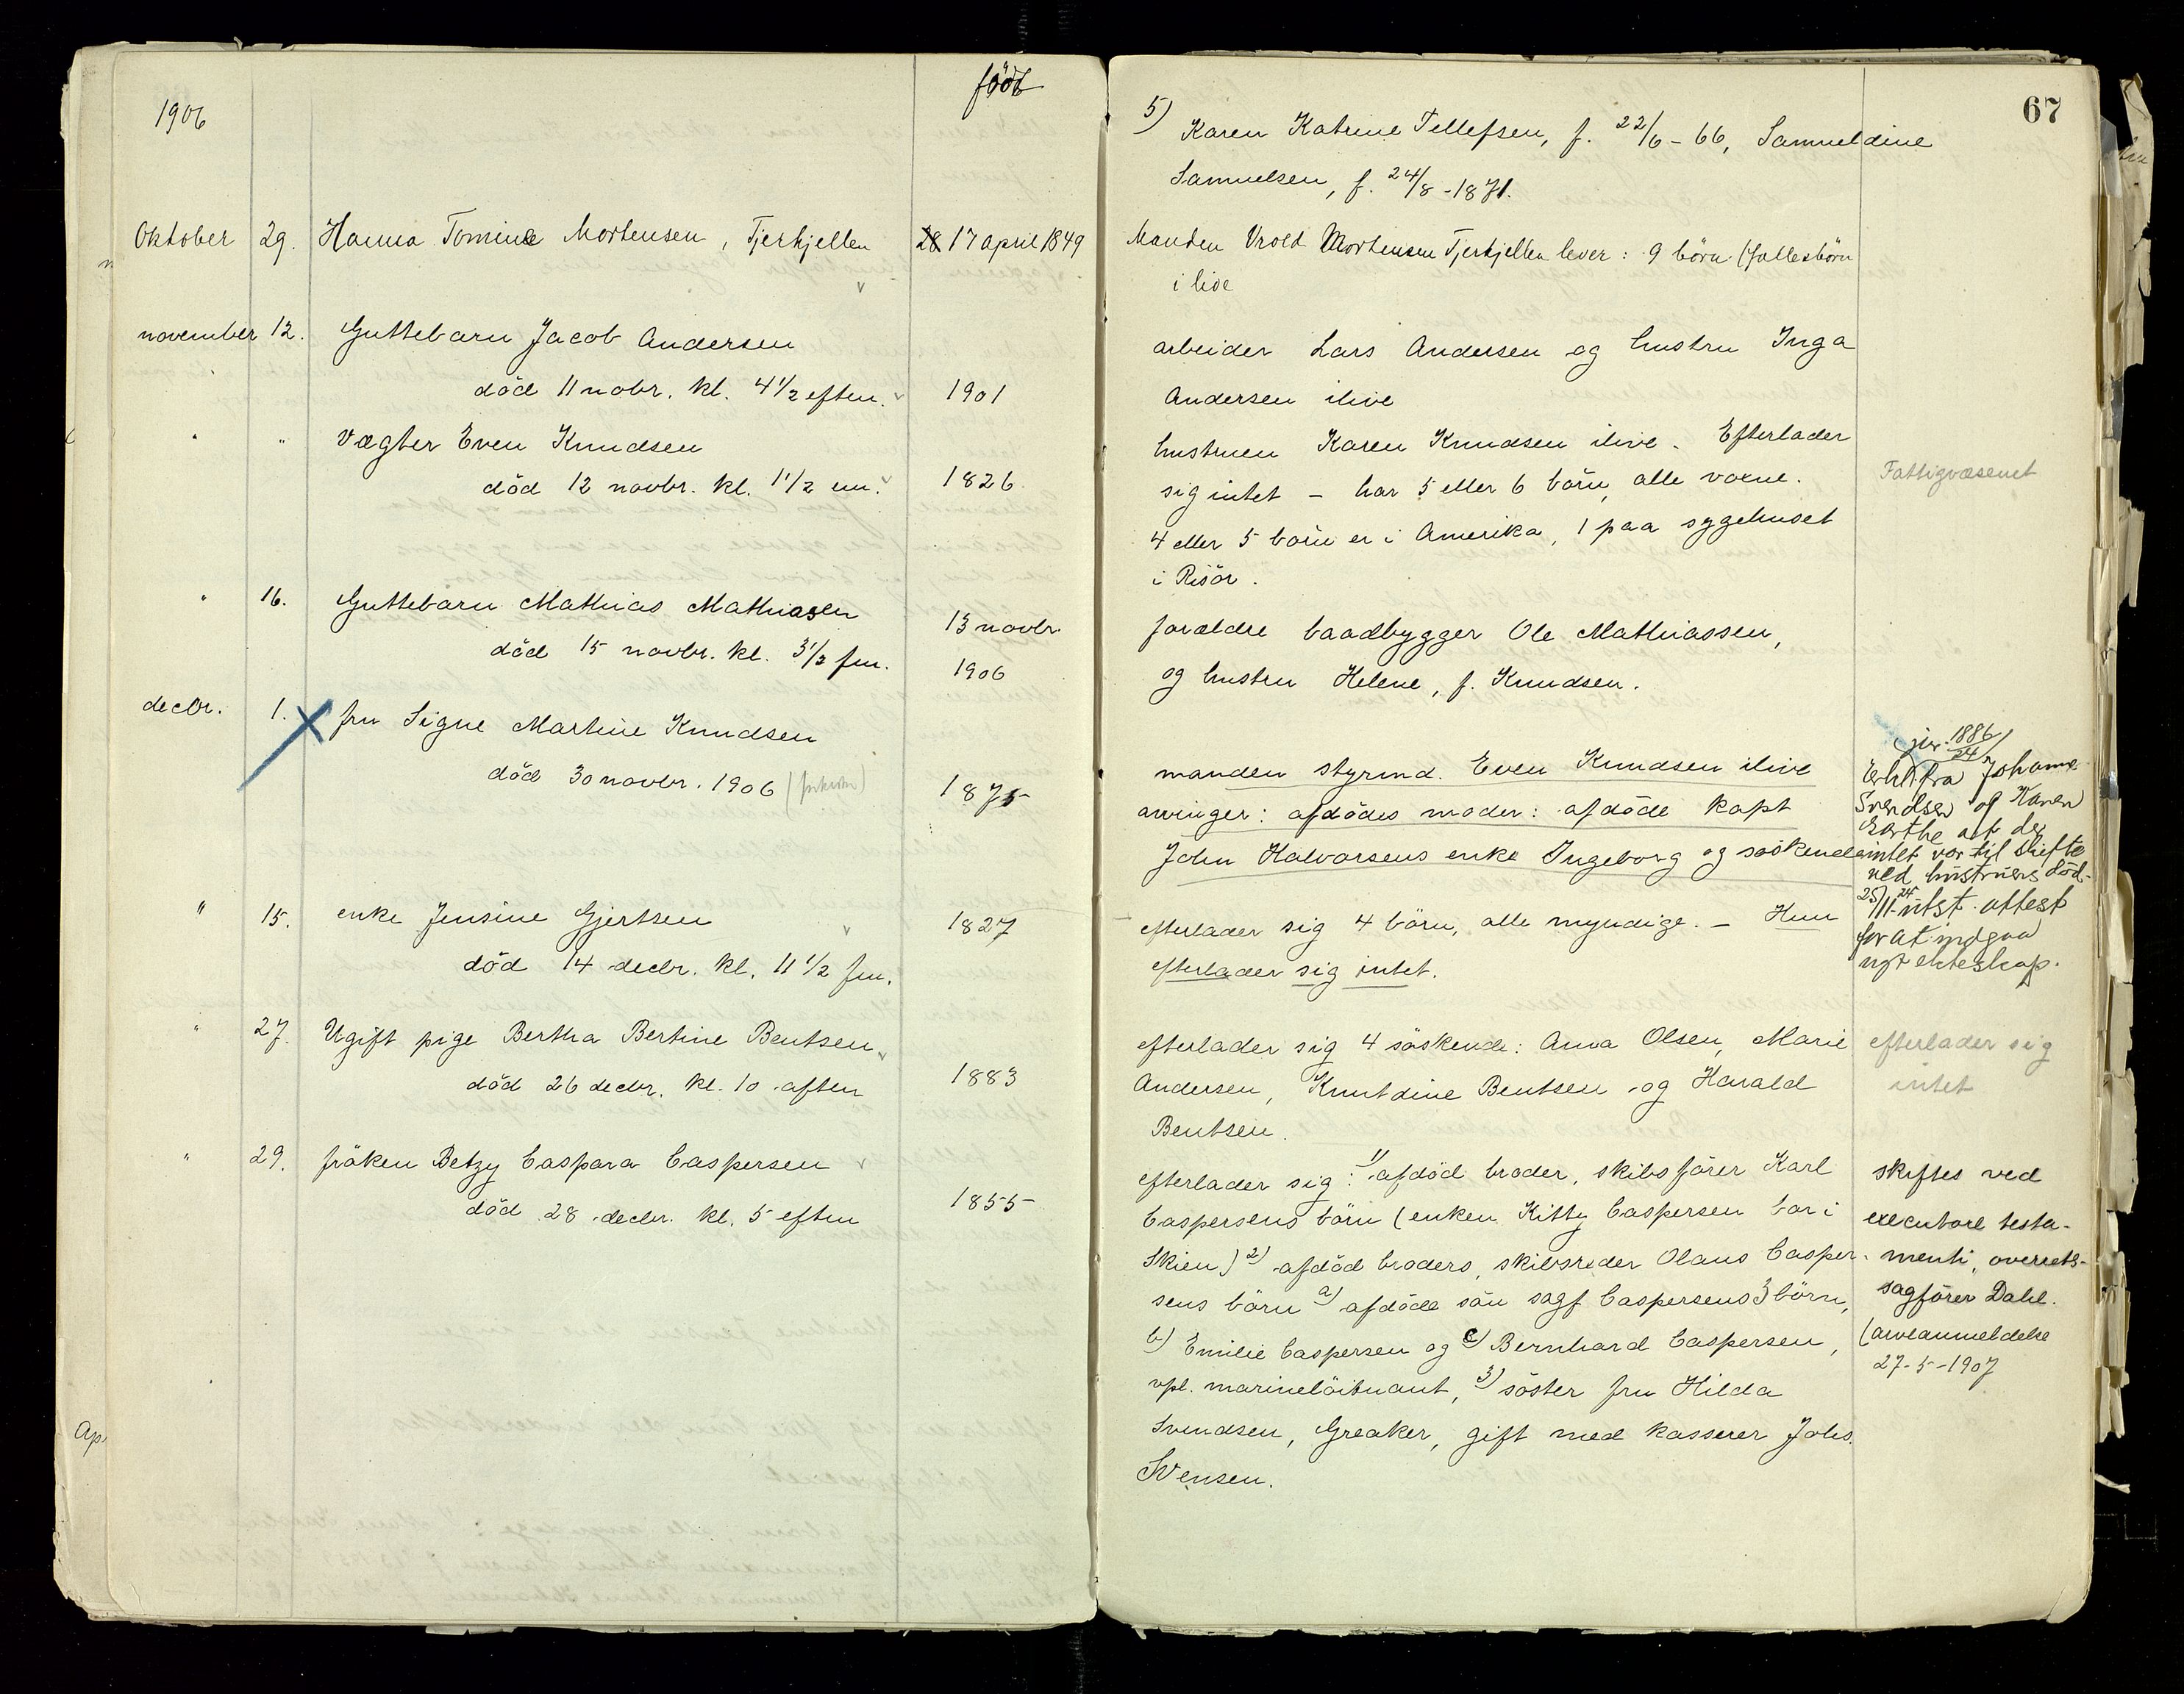 1906
födt
Oktober 29. Hanna Tomine Mortensen, Tjerkjellen 17 april 1849
november 12. Guttebarn Jacob Andersen
död 11 novbr. kl. 4 1/2 eftm. 1901
" " Vægter Even Knudsen
död 12 novbr. kl. 1 1/2 em. 1826
" 16. Guttebarn Mathias Mathiasen 13 novbr.
död 15 novbr. kl. 3 1/2 fm. 1906
decbr. 1. fru Signe Martine Knudsen
död 30 novbr. 1906 1875
" 15. enke Jensine Gjertsen 1827
död 14 decbr. kl. 11 1/2 fm.
" 27. Ugift pige Bertha Bertine Bentsen
död 26 decbr. kl. 10 aften 1883
" 29. fröken Betzy Caspara Caspersen
död 28 decbr. kl. 5 eftm 1855
Ap.
67
5) Karen Katrine Tellefsen, f. 22/6 - 66, Samueldine
Samuelsen, f. 24/8 - 1871.
Manden Vrold Mortensen Tjerkjellen lever: 9 börn (fællesbörn
i live
arbeider Lars Andersen og hustru Inga
Andersen ilive
hustruen Karen Knudsen ilive. Efterlader
sig intet - har 5 eller 6 börn, alle voxne.
4 eller 5 börn er i Amerika, 1 paa sygehuset
i Risör.
Fattigvæsenet
forældre baadbygger Ole Mathiassen,
og hustru Helene, f. Knudsen.
manden styrmd. Even Knudsen ilive
arvinger: afdödes moder: afdöde kapt
John Halvorsens enke Ingeborg og söskende
jnr. 1886/24
Erkl. fra Johanne
Svendsen og Karen
Barthe at der
intet var til skifte
ved hustruens död.
25/11-24 utst. attest
for at indgaa
nyt ekteskap.
efterlader sig 4 börn, alle myndige. - Hun
efterlader sig intet.
efterlader sig 4 söskende: Anna Olsen, Marie
Andersen, Knutdine Bentsen og Harald
Bentsen.
efterlader sig
intet
efterlader sig: 1) afdöd broder, skibsförer Karl
Caspersens börn (enken Kitty Caspersen bor i
Skien) 2) afdöd broders, skibsreder Olaus Casper-
sens börn a) afdöde sön sagf Caspersens 3 börn,
b) Emilie Caspersen og c) Bernhard Caspersen,
vpl. marinelöitnant, 3) söster fru Hilda
Svendsen, Greaker, gift med kasserer Johs.
Svensen.
skiftes ved
executore testa-
menti, overrets-
sagförer Dahl.
(arveanmeldelse
27-5-1907